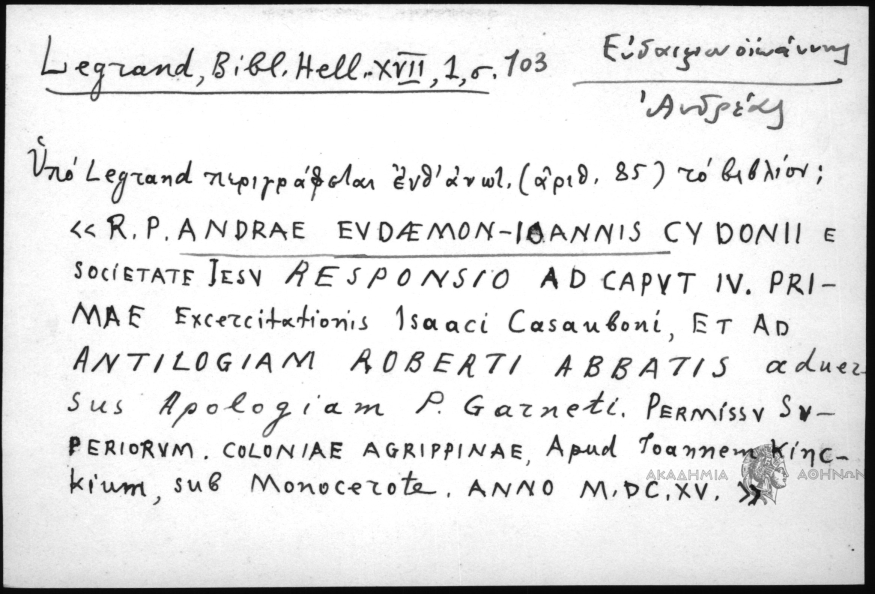 Legrand, Bibl. Hell. XVII, 1, σ. 103
Εὐδαιμονοϊωάννης
Ἀνδρέας
Ὑπό Legrand περιγράφεται ἐνθ' ἀνωτ. (ἀριθ. 85) τό βιβλίον;
«R. P. ANDRAE EVDÆMON-IOANNIS CYDONII E
SOCIETATE JESV RESPONSIO AD CAPVT IV. PRI-
MAE Excercitationis Isaaci Casauboni, ET AD
ANTILOGIAM ROBERTI ABBATIS aduer-
sus Apologiam P. Garneti. PERMISSV SV-
PERIORVM. COLONIAE AGRIPPINAE, Apud Ioannem Kinc-
kium, sub Monocerote. ANNO M.DC.XV.»
ΑΚΑΔΗΜΙΑ ΑΘΗΝΩΝ